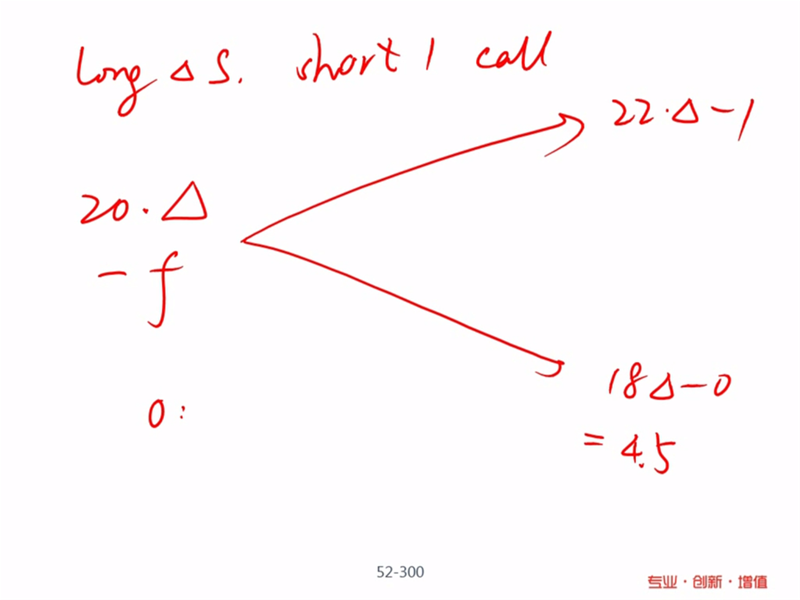 long Δ S. short 1 call
22·Δ-1
20·Δ
- f
18Δ-0
= 4.5
0:
52-300
专业·创新·增值